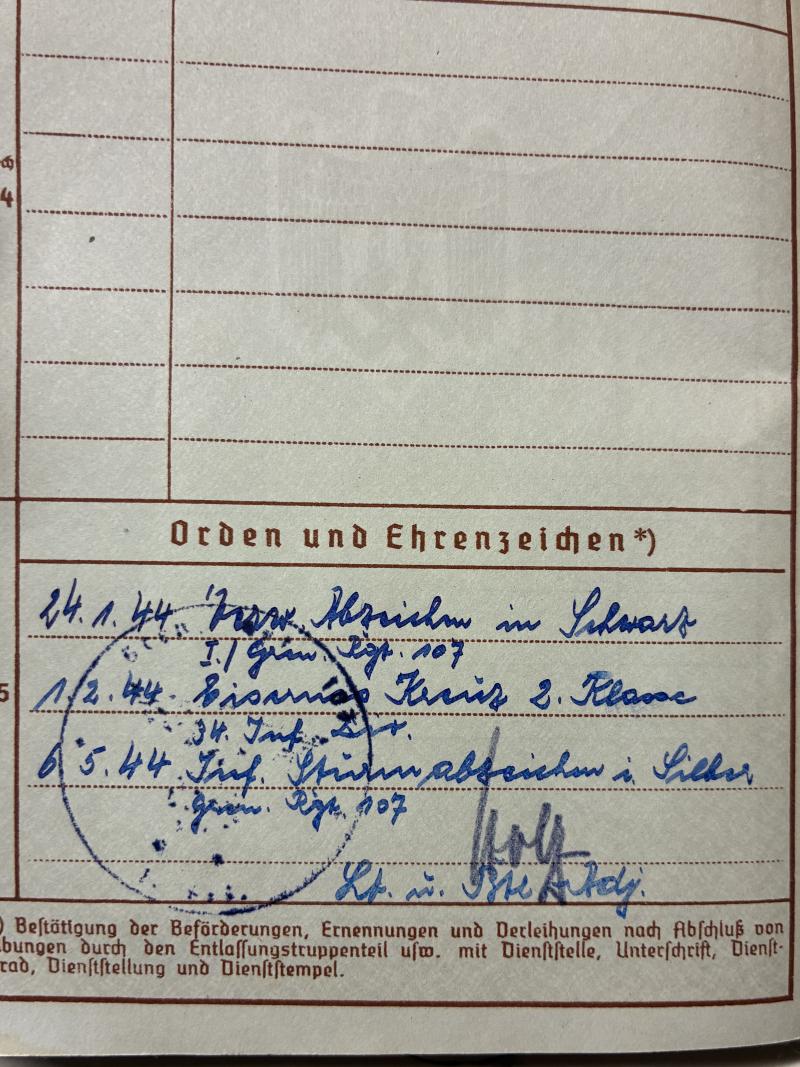 4
Orden und Ehrenzeichen *)
24.1.44 Verw. Abzeichen in Schwarz
I./Gren. Rgt. 107
5
1.2.44. Eisernes Kreuz 2. Klasse
34. Inf. Div.
6.5.44 Inf. Sturmabzeichen i. Silber
Gren. Rgt. 107
Lt. u. Btl. Adj.
) Bestätigung der Beförderungen, Ernennungen und Verleihungen nach Abschluß von
bungen durch den Entlassungstruppenteil usw. mit Dienststelle, Unterschrift, Dienst-
rad, Dienststellung und Dienststempel.